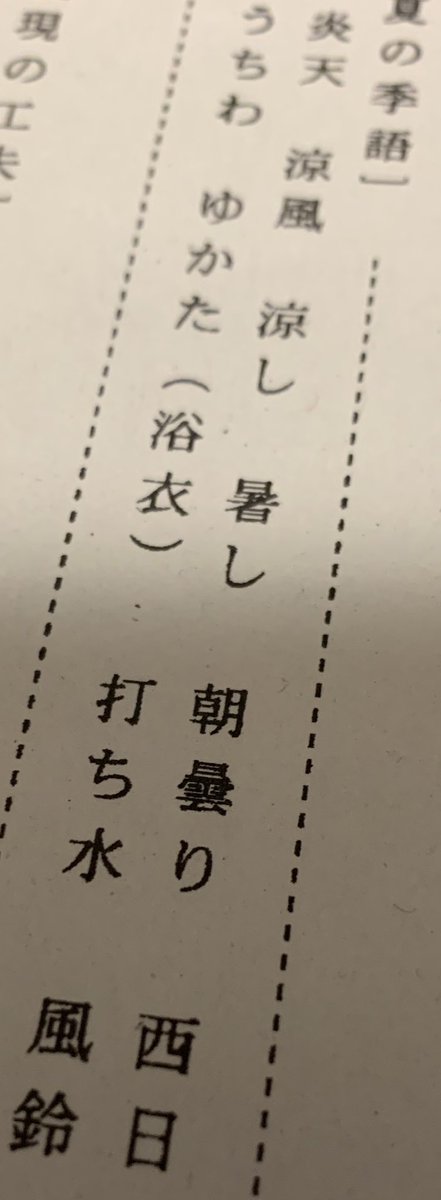 夏の季語］
炎天　涼風　涼し　暑し　朝曇り　西日
うちわ　ゆかた（浴衣）　打ち水　風鈴
現の工夫］